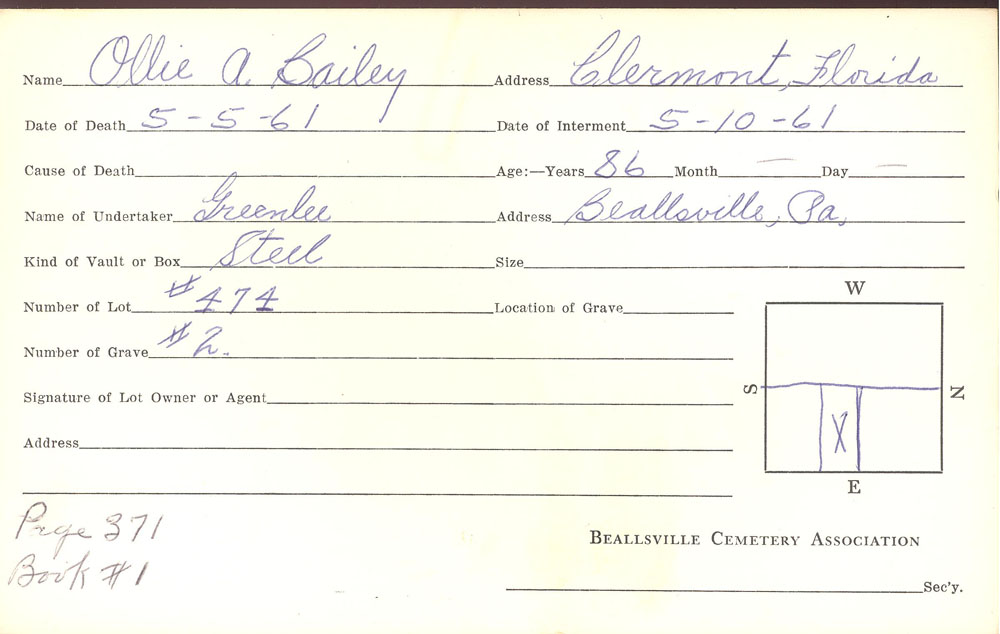 Name Ollie A. Bailey Address Clermont, Florida
Date of Death 5-5-61 Date of Interment 5-10-61
Cause of Death Age:—Years 86 Month — Day —
Name of Undertaker Greenlee Address Beallsville, Pa.
Kind of Vault or Box Steel Size
Number of Lot #474 Location of Grave
Number of Grave #2.
Signature of Lot Owner or Agent
Address
W
S N
X
E
Page 371
Book #1
BEALLSVILLE CEMETERY ASSOCIATION
Sec'y.